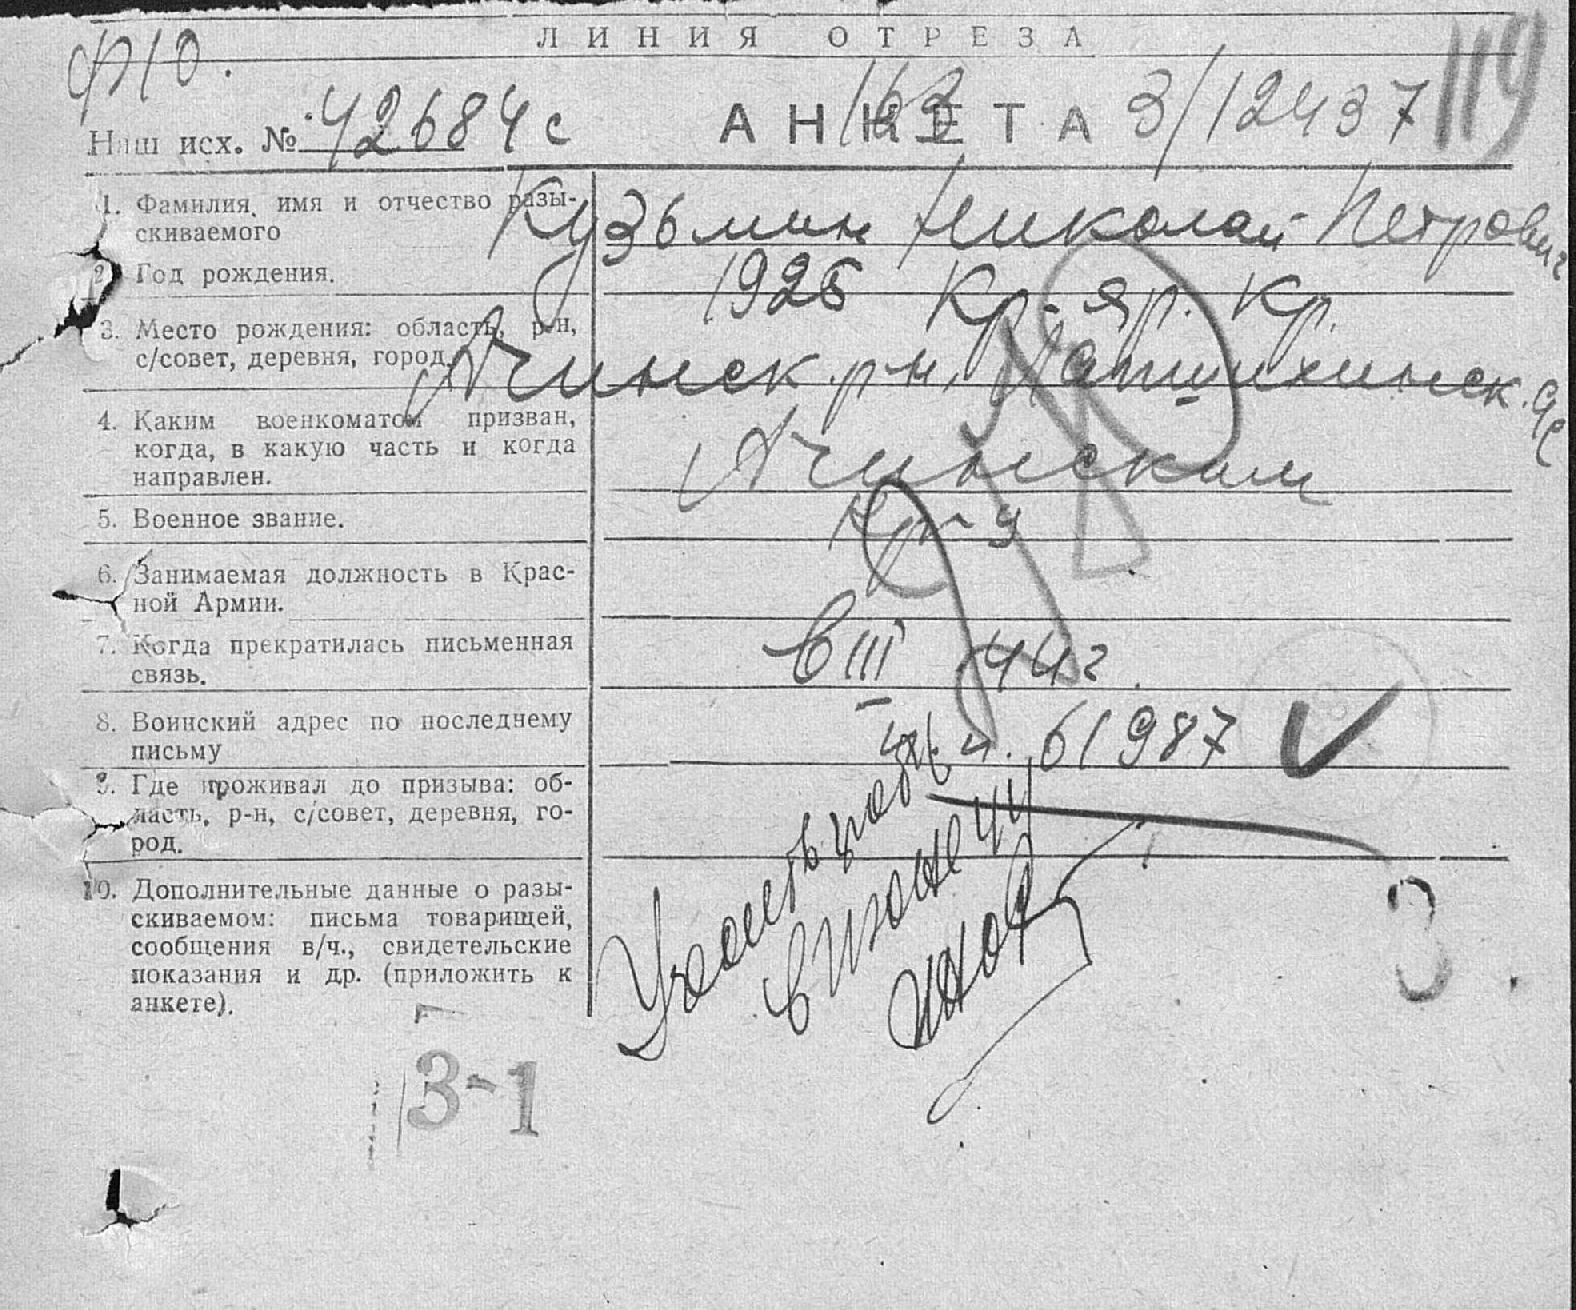 ЛИНИЯ ОТРЕЗА
119
Наш исх. № 42684с АНКЕТА 3/12437
1. Фамилия, имя и отчество разы-
скиваемого
Кузьмин Николай Петрович
2. Год рождения.
1926 Кр-яр. Кр.
3. Место рождения: область, р-н,
с/совет, деревня, город.
Ачинск. р-н,
4. Каким военкоматом призван,
когда, в какую часть и когда
направлен.
Ачинским
5. Военное звание.
6. Занимаемая должность в Крас-
ной Армии.
7. Когда прекратилась письменная
связь.
в III 44 г.
8. Воинский адрес по последнему
письму
61987
9. Где проживал до призыва: об-
ласть, р-н, с/совет, деревня, го-
род.
10. Дополнительные данные о разы-
скиваемом: письма товарищей,
сообщения в/ч., свидетельские
показания и др. (приложить к
анкете).
3
3-1